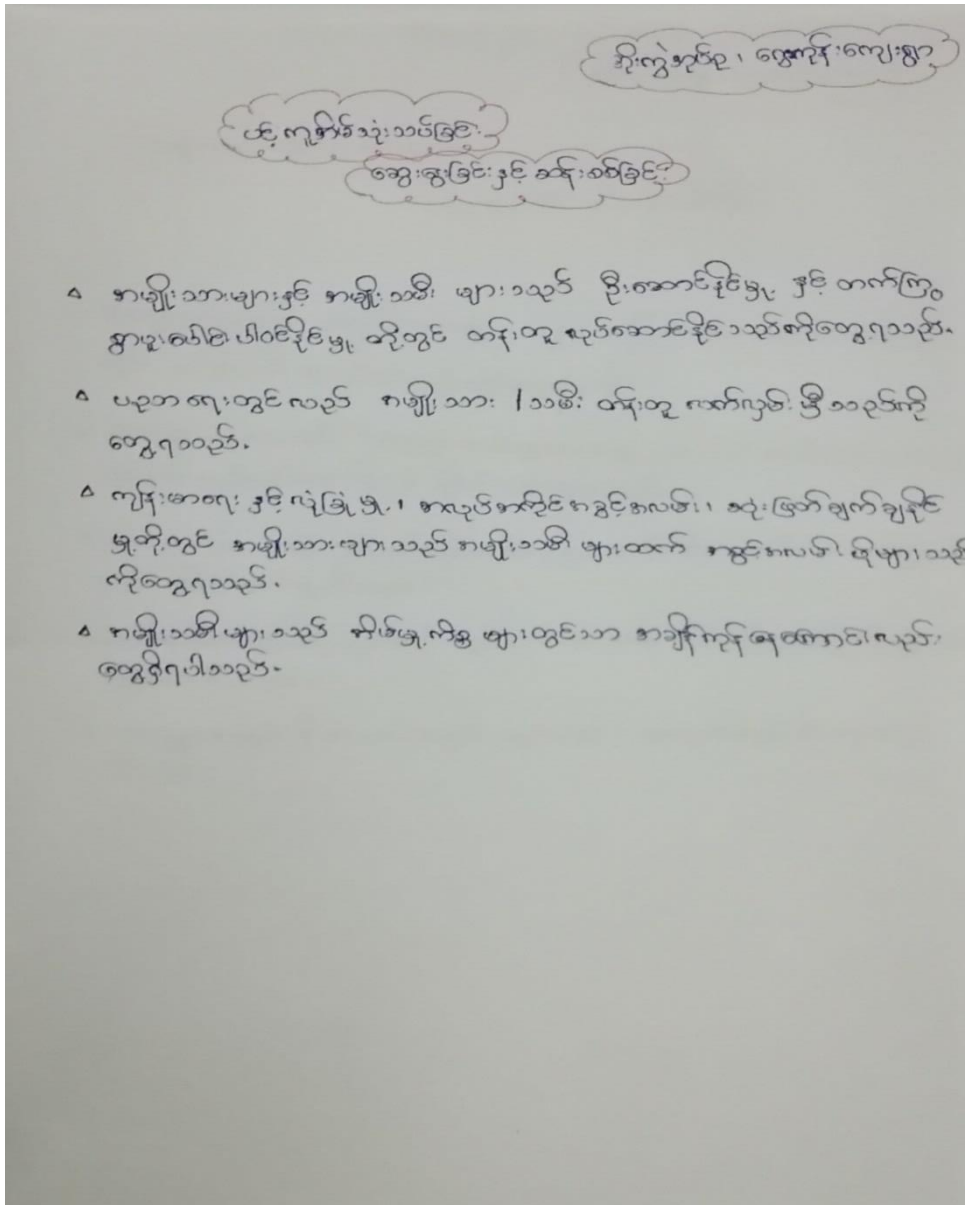 အိုးကွဲအုပ်စု၊ ရွှေကုန်းကျေးရွာ
ပင့်ကူအိမ်သုံးသပ်ခြင်း
ဆွေးနွေးခြင်းနှင့် ဆန်းစစ်ခြင်း
အမျိုးသားများနှင့် အမျိုးသမီး များသည် ဦးဆောင်နိုင်မှု နှင့် တက်ကြွ
စွာပူးပေါင်းပါဝင်နိုင်မှု တို့တွင် တန်းတူ လုပ်ဆောင်နိုင်သည်ကိုတွေ့ရသည်။
ပညာရေးတွင်လည်း အမျိုးသား /သမီး တန်းတူ လက်လှမ်းမှီသည်ကို
တွေ့ရသည်။
ကျန်းမာရေး နှင့်လုံခြုံမှု၊ အလုပ်အကိုင်အခွင့်အလမ်း၊ ဆုံးဖြတ်ချက်ချနိုင်
မှုတို့တွင် အမျိုးသားများသည် အမျိုးသမီးများထက် အခွင့်အလမ်းပိုများသည်
ကိုတွေ့ရသည်။
အမျိုးသမီးများသည် အိမ်မှုကိစ္စ များတွင်သာ အချိန်ကုန်နေကြောင်းလည်း
တွေ့ရှိရပါသည်။